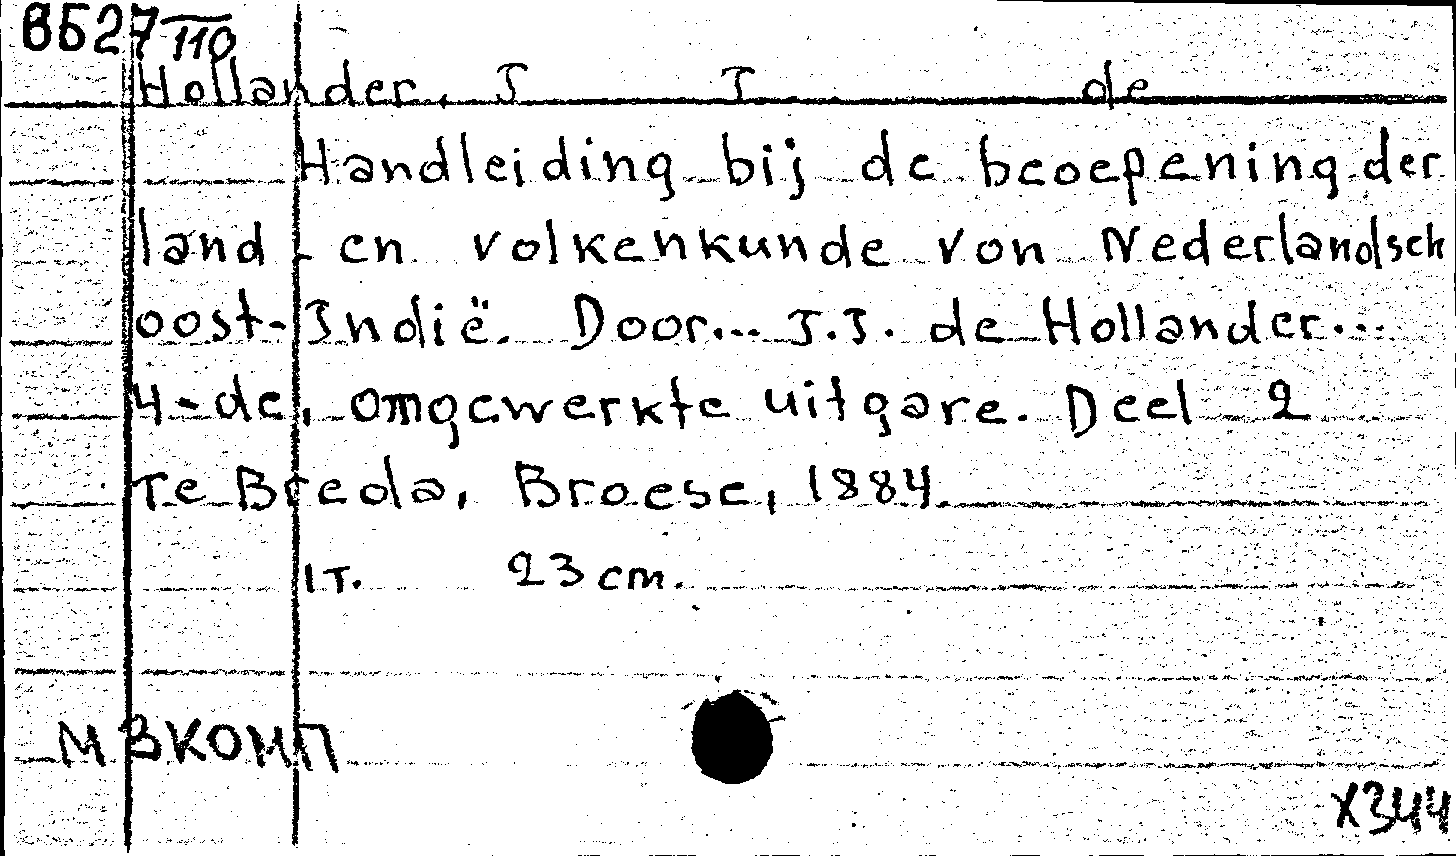 вБ27/110
Hollander, J J de
Handleiding bij de beoepening der
land - en volkenkunde von Nederlandsch
oost-Indië. Door... J.J. de Hollander...
4-de, omgewerkte uitgare. Deel 2
Te Breda, Broese, 1884.
1т. 23 cm.
М ВКОИП
X344